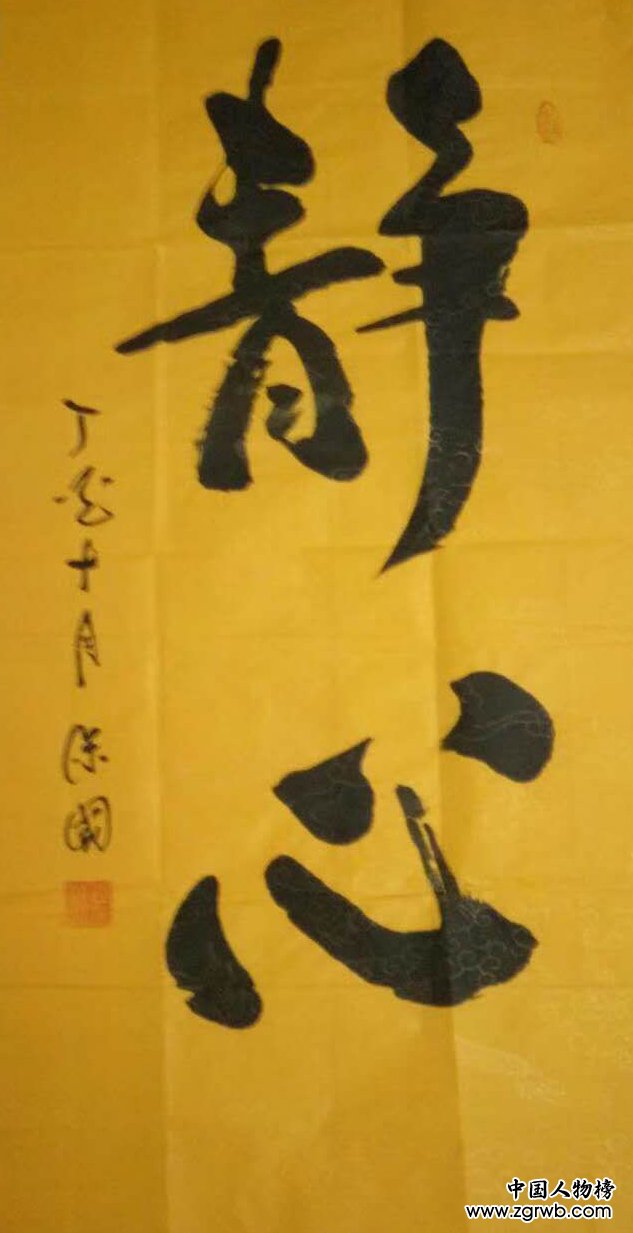 静心
丁 十月 保國
中国人物榜
www.zgrwb.com